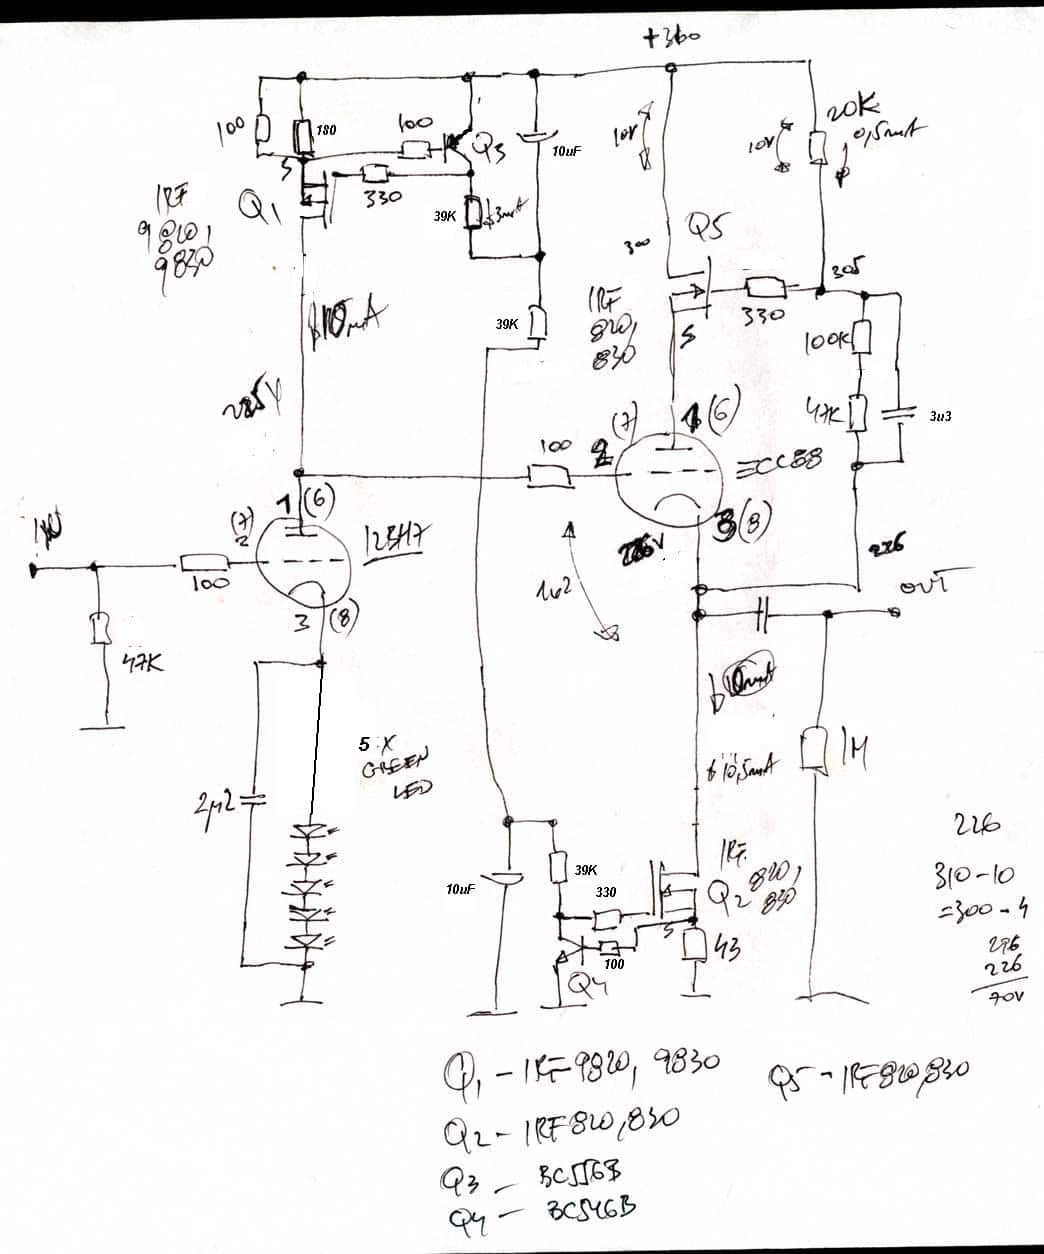 +360
100
180
100
Q3
10uF
10V
10V
20K
0,5mA
S
330
Q1
IRF
9820,
9830
39K
3mA
Q5
300
305
330
IRF
820,
830
S
39K
100K
47K
3u3
10mA
225V
100
2
(7)
1 (6)
ECC88
3 (8)
226
OUT
1 (6)
(7)
2
12BH7
100
3 (8)
47K
1u2
10mA
10,5mA
1M
5 X
GREEN
LED
2µ2
10uF
39K
330
IRF
820,
830
Q2
S
100
43
Q4
226
310-10
=300-4
296
226
70V
Q1 - IRF 9820, 9830
Q5 - IRF 820, 830
Q2 - IRF 820, 830
Q3 - BC556B
Q4 - BC546B